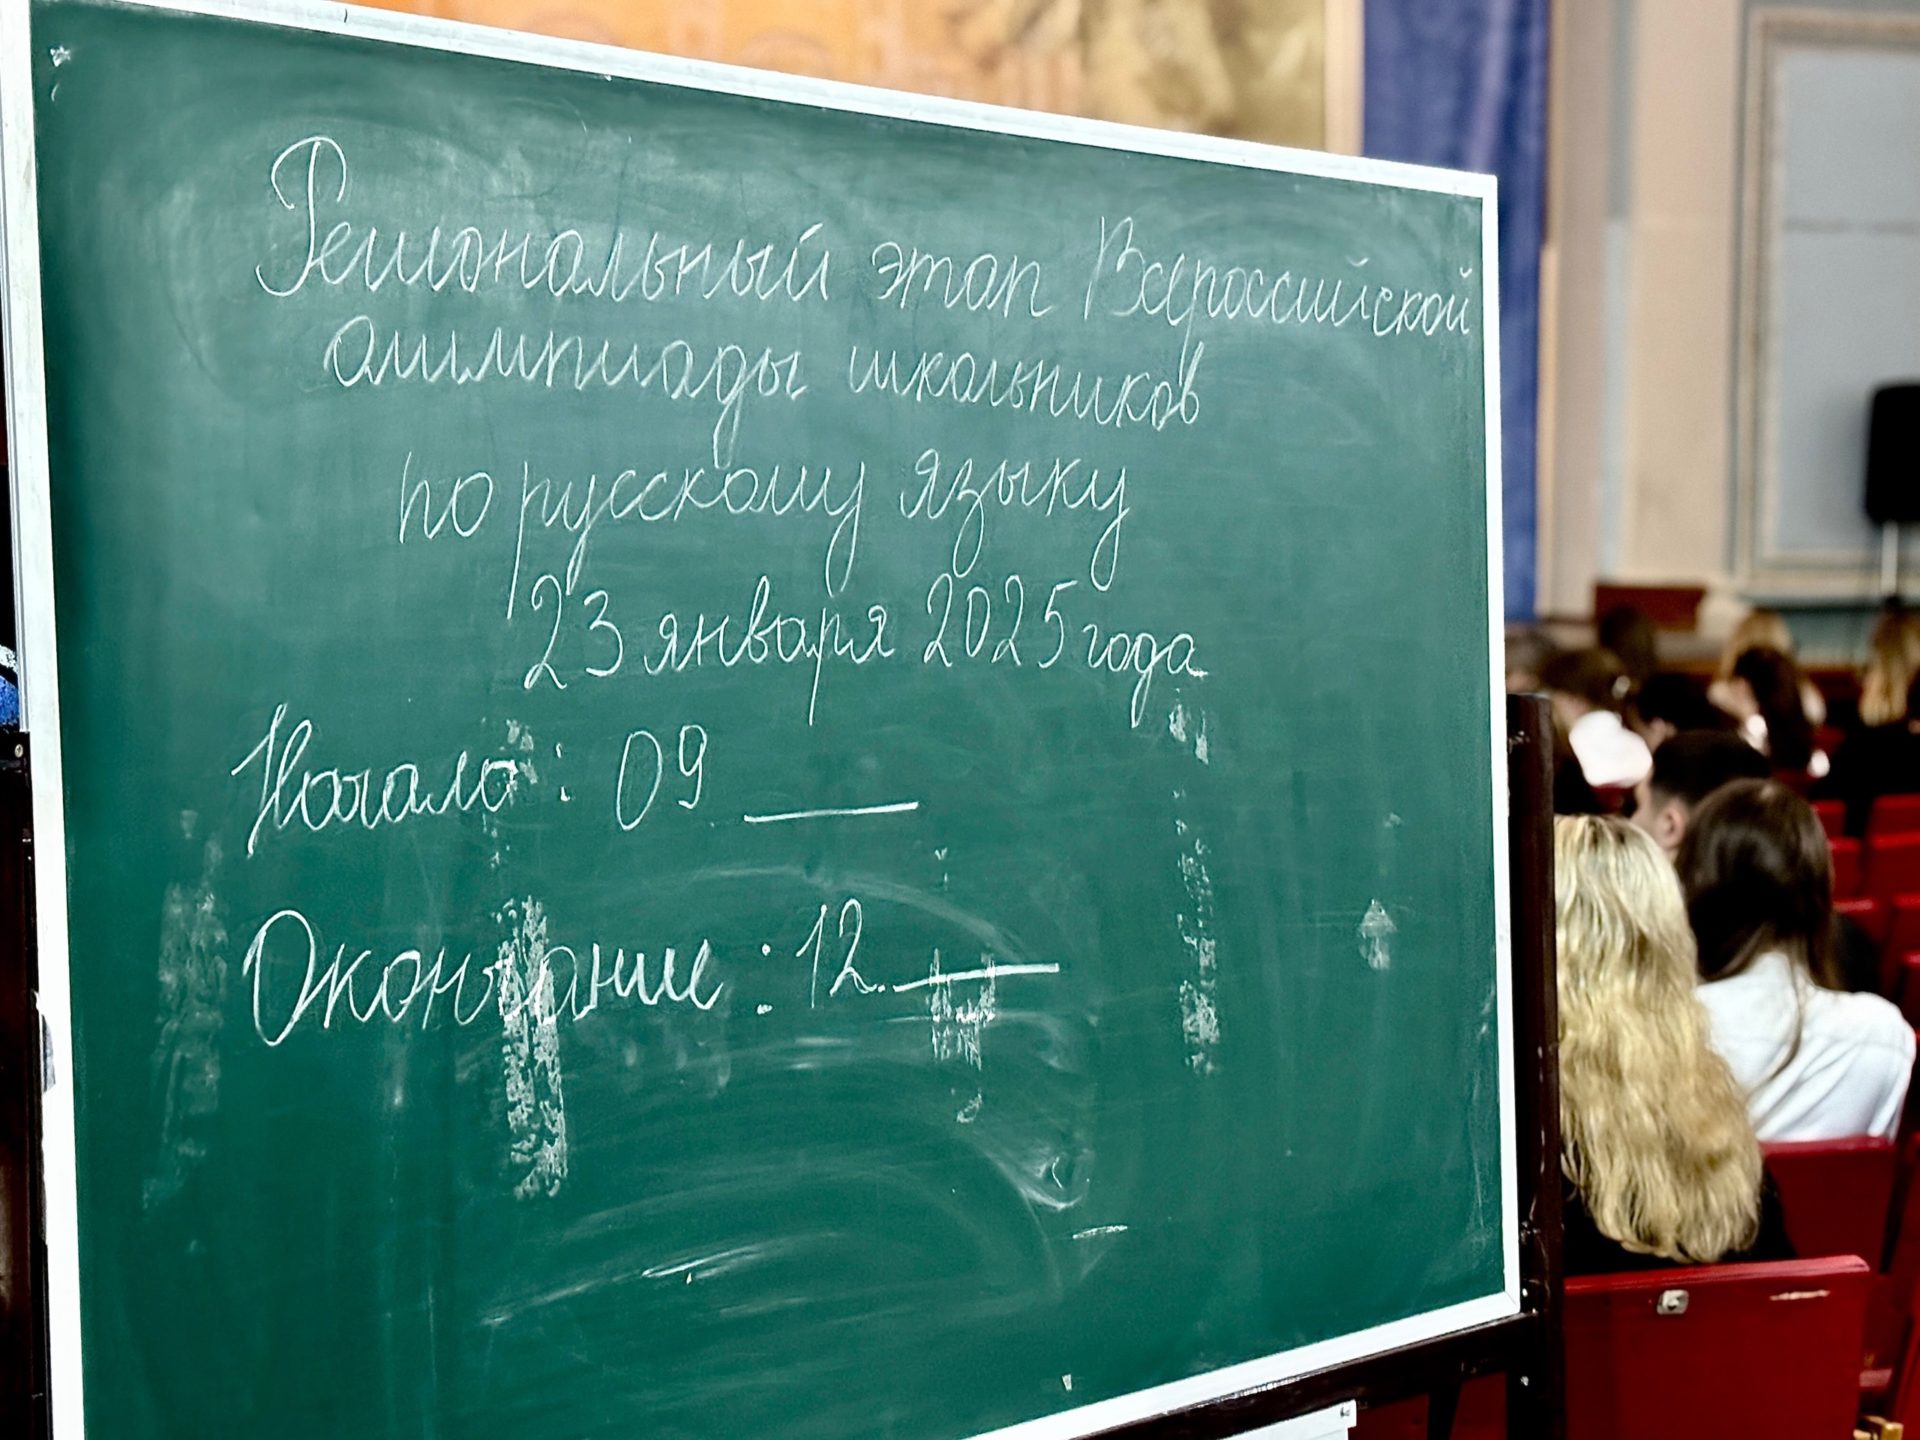 Региональный этап Всероссийской
олимпиады школьников
по русскому языку
23 января 2025 года
Начало: 09 ___
Окончание: 12.___